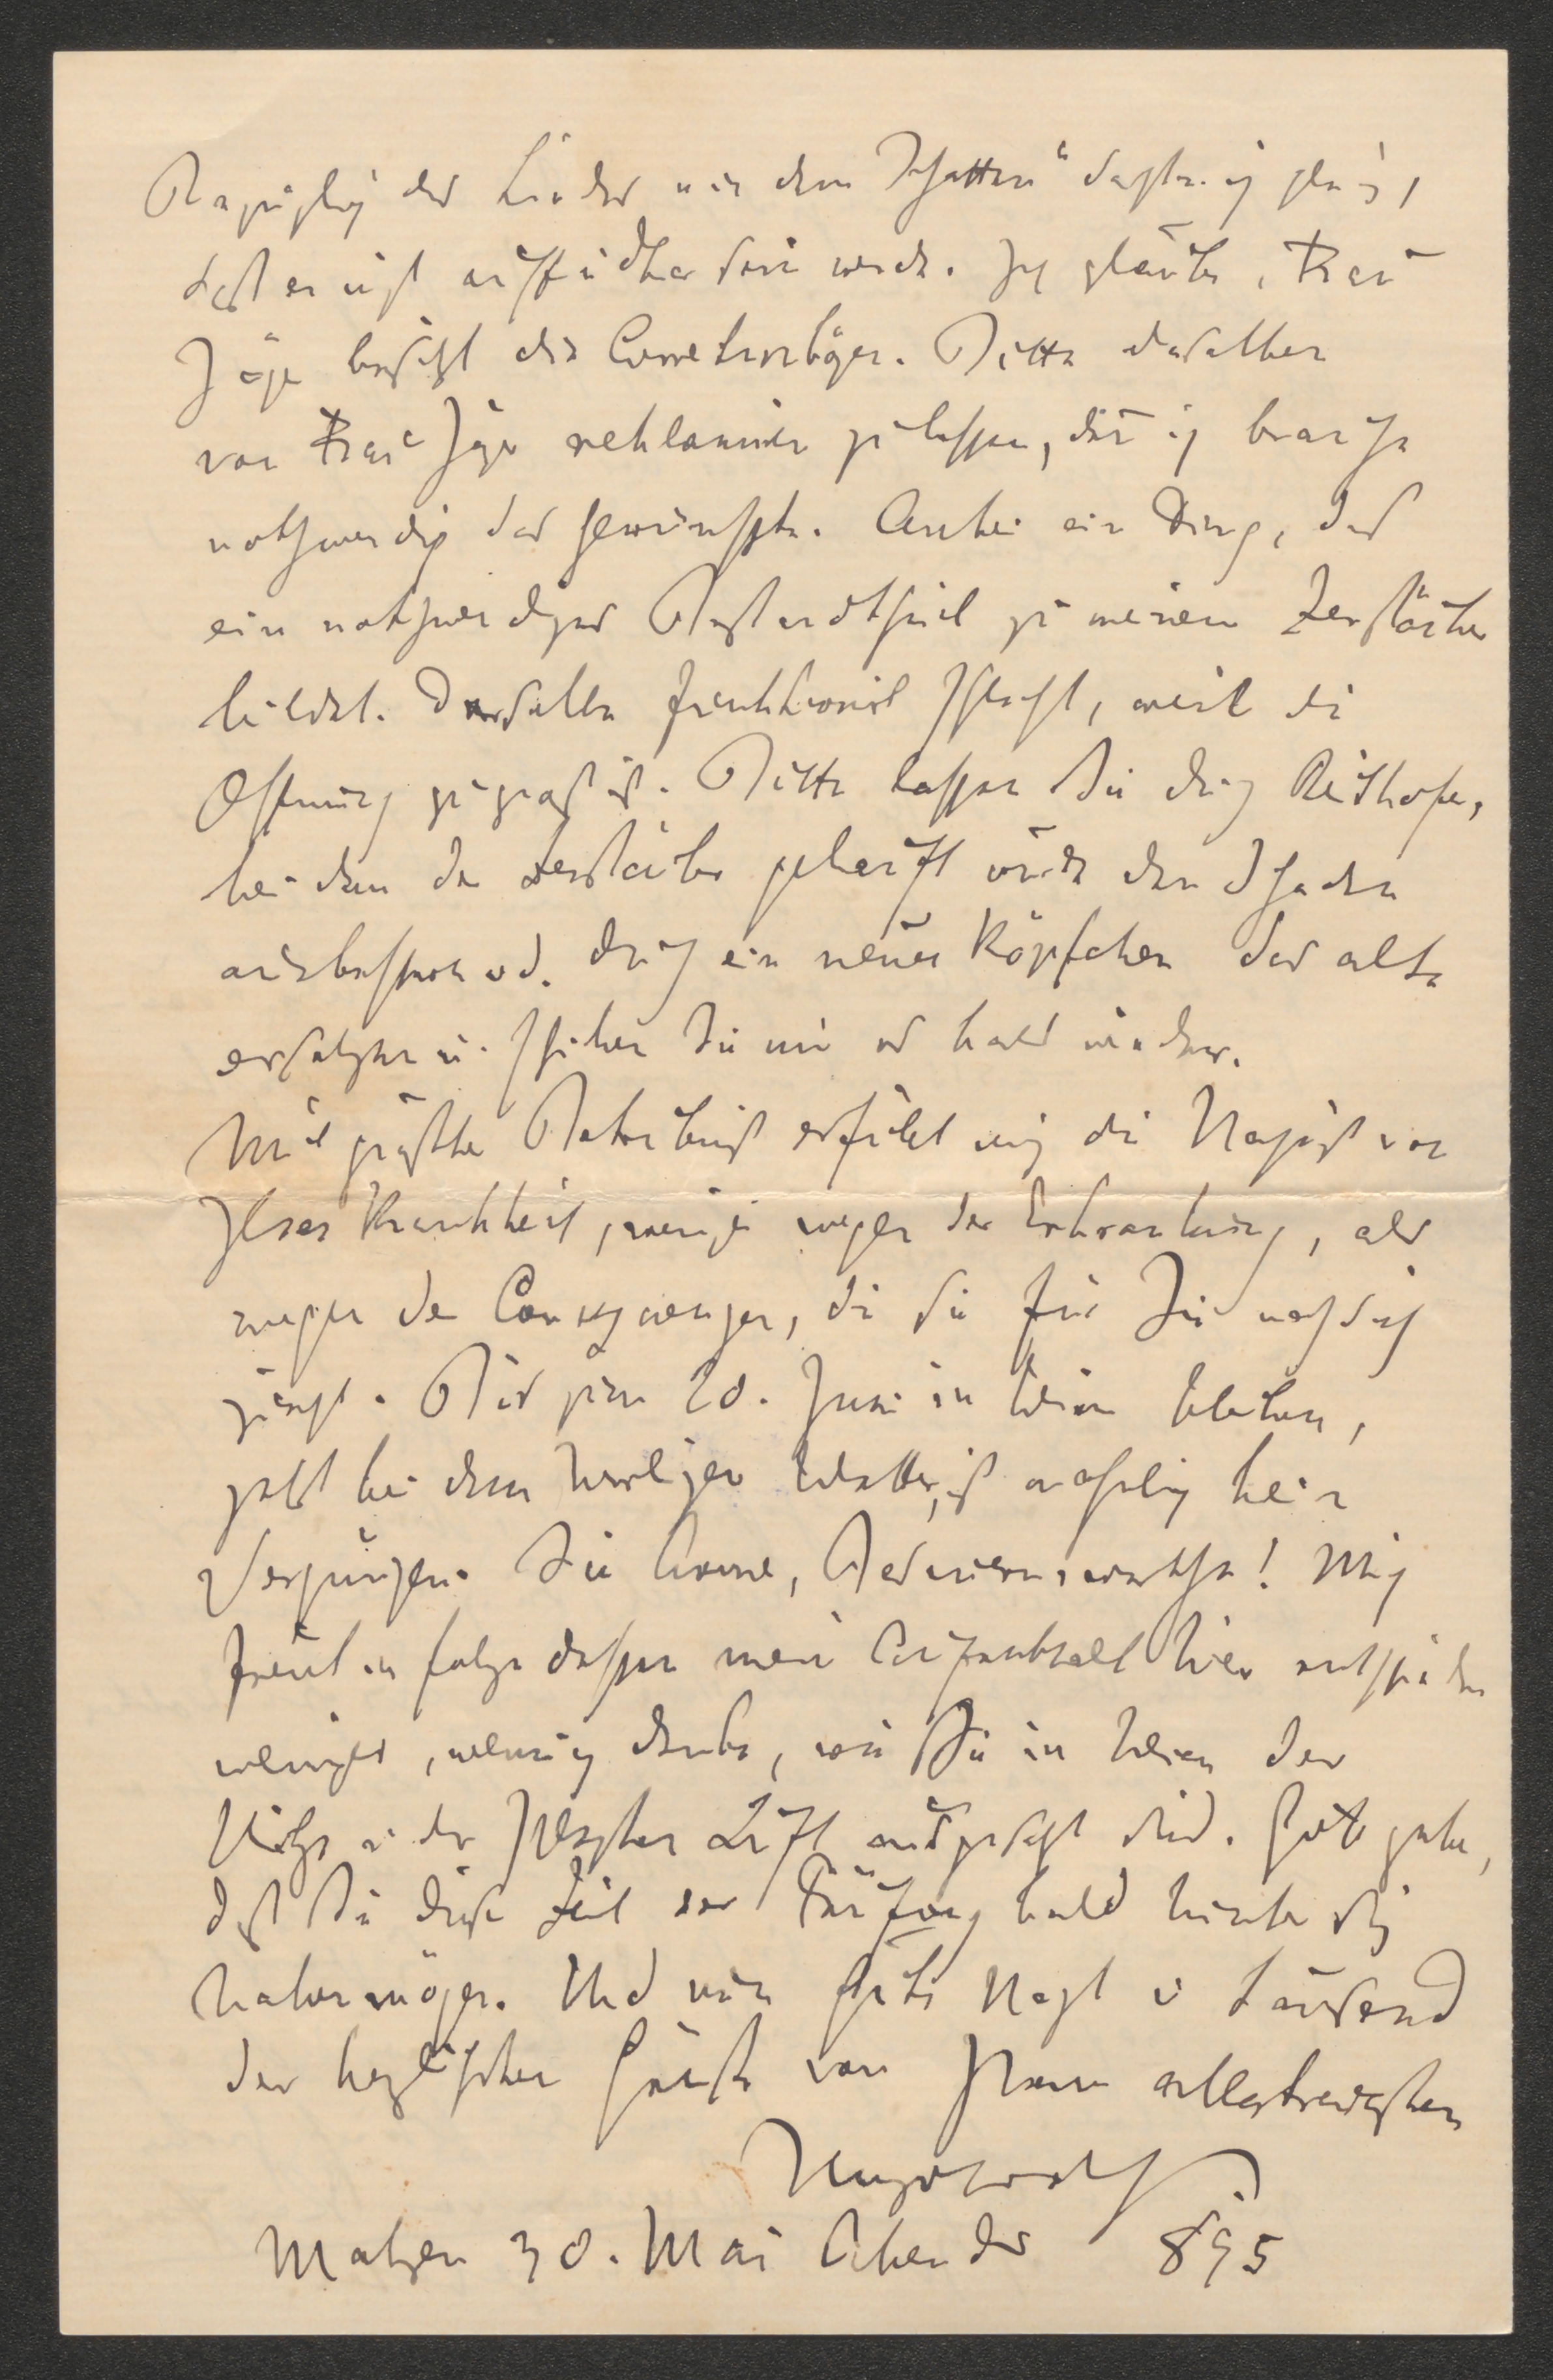 Bezüglich des Liedes „in dem Schatten" dachte ich gleich,
daß er nicht auffindbar sein werde. Ich glaube, Frau
Jäger besitzt die Correkturbögen. Bitte dieselben
von Frau Jäger reklamiren zu lassen, da ich brauche
nothwendig das Gewünschte. Anbei ein Ding, das
ein nothwendiges Bestandtheil zu meinem Zerstäuber
bildet. Derselbe funktionirt schlecht, weil die
Öffnung zu groß ist. Bitte lassen Sie durch Reithofer,
bei dem der Zerstäuber gekauft wurde den Schaden
ausbessern od. durch ein neues Köpfchen das alte
ersetzen u. schicken Sie mir es bald wieder.
Mit größter Betrübniß erfüllt mich die Nachricht von
Ihrer Krankheit, weniger wegen der Erkrankung, als
wegen der Consequenzen, die sie für Sie nach sich
zieht. Bis zum 20. Juni in Wien bleiben,
jetzt bei dem herrlichen Wetter, ist wahrlich kein
Vergnügen. Sie Arme, Bedauernswerthe! Mich
freut in folge dessen mein Aufenthalt hier entschieden
weniger, wenn ich denke, wie Sie in Wien der
Hitze u. der schlechten Luft ausgesetzt sind. Gott gebe,
daß Sie diese Zeit der Prüfung bald hinter sich
haben mögen. Und nun gute Nacht u tausend
der herzlichsten Grüße von Ihrem allergetreuesten
Hugo Wolf
Matzen 30. Mai Abends 895